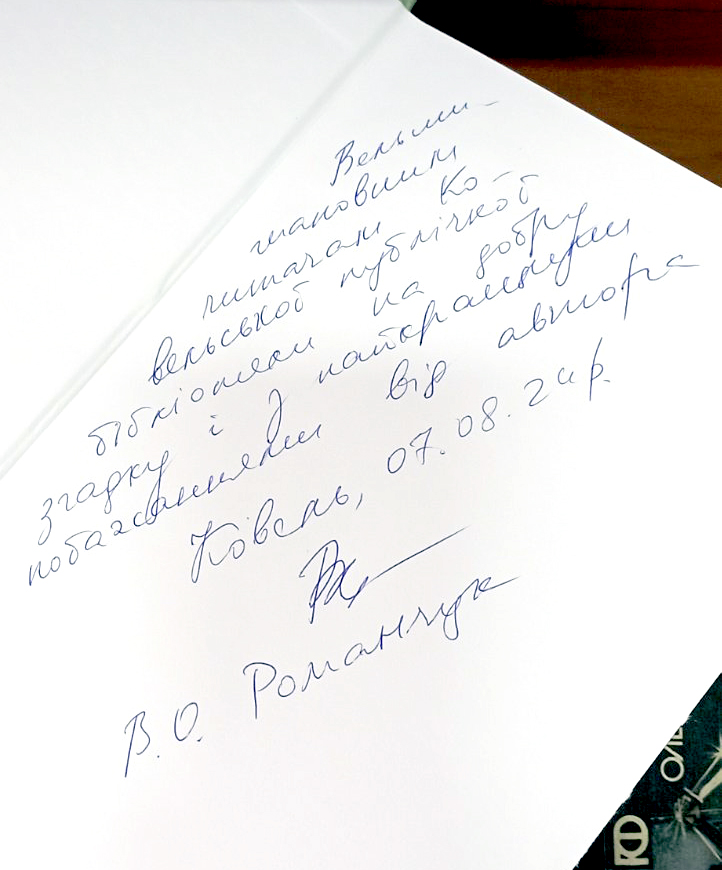 Вельми-
шановним
читачам Ко-
вельської публічної
бібліотеки на добру
згадку і з найкращими
побажаннями від автора
Ковель, 07.08.24р.
В.О. Романчук
ОЛЕ